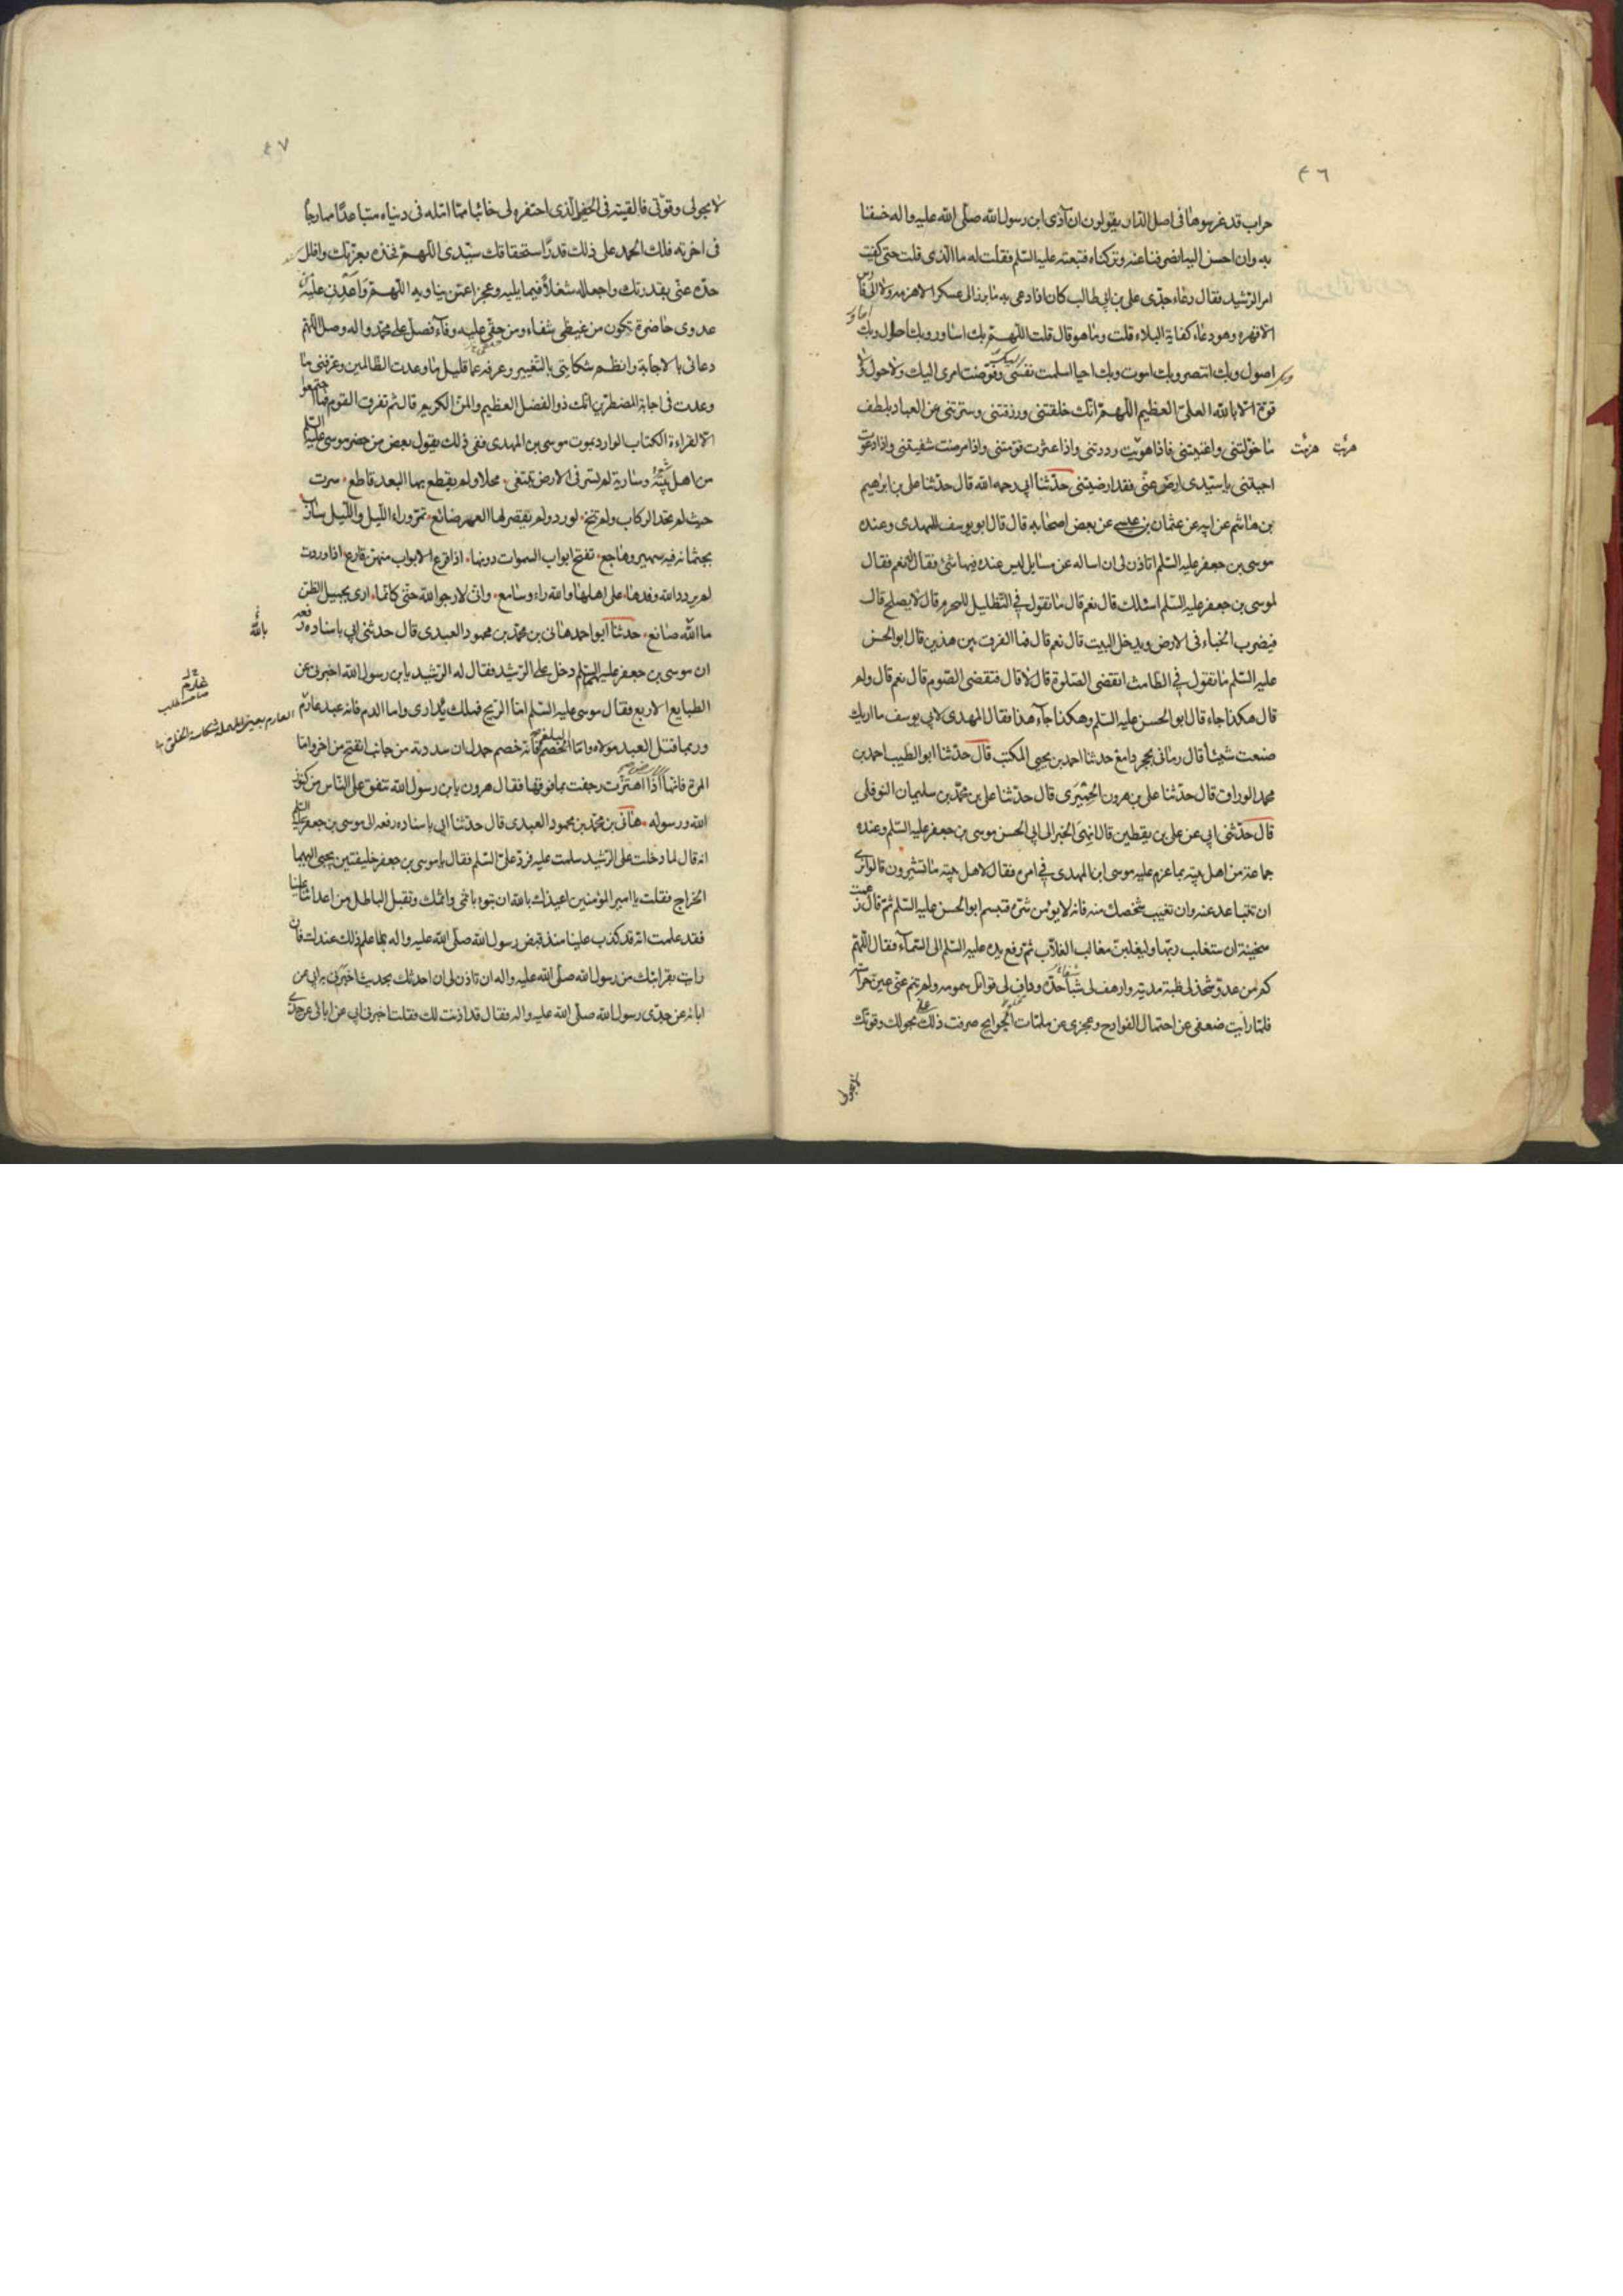 ٤٦
حراب قد غرسوها فى اصل الدار يقولون ان آذى ابن رسول الله صلى الله عليه واله خسفنا
به وان احسن اليه انصرفنا عنه وتركناه فتبعته عليه السلم فقلت له ما الذى قلت حتى كفيت
امر الرشيد فقال دعاء جدى على بن ابى طالب كان اذا دعى به ما برز الى عسكر الا هزمه ولا الى فارس
الا قهره وهو دعاء كفاية البلاء قلت وما هو قال قلت اللهم بك اساور وبك احاول وبك
اصول وبك انتصر وبك اموت وبك احيا اسلمت نفسى اليك وفوضت امرى اليك ولا حول ولا
قوة الا بالله العلى العظيم اللهم انك خلقتنى ورزقتنى وسترتنى عن العباد بلطف
ما خولتنى واغنيتنى فاذا هويت رددتنى واذا عثرت قومتنى واذا مرضت شفيتنى واذا دعوت
اجبتنى يا سيدى ارض عنى فقد ارضيتنى حدثنا ابى رحمه الله قال حدثنا على بن ابراهيم
بن هاشم عن ابيه عن عثمان بن عيسى عن بعض اصحابه قال قال ابو يوسف للمهدى وعنده
موسى بن جعفر عليه السلم اتاذن لى ان اساله عن مسايل ليس عنده فيها شئ فقال له نعم فقال
لموسى بن جعفر عليه السلم اسئلك قال نعم قال ما تقول فى التظليل للمحرم قال لا يصلح قال
فيضرب الخباء فى الارض ويدخل البيت قال نعم قال فما الفرق بين هذين قال ابو الحسن
عليه السلم ما تقول فى الطامث اتقضى الصلوة قال لا قال فتقضى الصوم قال نعم قال ولم
قال هكذا جاء قال ابو الحسن عليه السلم وهكذا جاء هذا فقال المهدى لابى يوسف ما اريك
صنعت شيئا قال رمانى بحجر دامغ حدثنا احمد بن يحيى المكتب قال حدثنا ابو الطيب احمد بن
محمد الوراق قال حدثنا على بن هرون الحميرى قال حدثنا على بن محمد بن سليمان النوفلى
قال حدثنى ابى عن على بن يقطين قال انهى الخبر الى ابى الحسن موسى بن جعفر عليه السلم وعنده
جماعة من اهل بيته بما عزم عليه موسى ابن المهدى فى امره فقال لاهل بيته ما تشيرون قالوا نرى
ان تتباعد عنه وان تغيب شخصك منه فانه لا يؤمن شره فتبسم ابو الحسن عليه السلم ثم قال زعمت
سخينة ان ستغلب ربها وليغلبن مغالب الغلاب ثم رفع يده عليه السلم الى السماء فقال اللهم
كم من عدو شحذ لى ظبة مديته وارهف لى شبا حده وداف لى قواتل سمومه ولم تنم عنى عين حراسته
فلما رايت ضعفى عن احتمال الفوادح وعجزى عن ملمات الجوايح صرفت ذلك عنى بحولك وقوتك
لا بحولى
٤٧
لا بحولى وقوتى فالقيته فى الحفير الذى احتفره لى خائبا مما امله فى دنياه متباعدا مما رجاه
فى اخرته فلك الحمد على ذلك قدر استحقاقك سيدى اللهم فخذه بعزتك وافلل
حده عنى بقدرتك واجعل له شغلا فيما يليه وعجزا عمن يناويه اللهم واعدنى عليه
عدوى حاضرة تكون من غيظى شفاء ومن حقى عليه وفاء فصل على محمد واله وصل اللهم
دعائى بالاجابة وانظم شكايتى بالتغيير وعرفه عما قليل ما وعدت الظالمين وعرفنى ما
وعدت فى اجابة المضطرين انك ذو الفضل العظيم والمن الكريم قال ثم تفرق القوم فما اجتمعوا
الا لقراءة الكتاب الوارد بموت موسى بن المهدى ففى ذلك يقول بعض من حضر موسى عليه السلم
من اهل بيته وسارية لم تسر فى الارض تبتغى محلا ولم يقطع بها البعد قاطع سرت
حيث لم تحد الركاب ولم تنخ لورد ولم يقصر لها العمر ضائع تمر وراء الليل والليل ساتر
بجثمانه فيه سمير وهاجع تفتح ابواب السموات دونها اذا قرع الابواب منهن قارع اذا وردت
لم يردد الله وفدها على اهلها والله راء وسامع وانى لارجو الله حتى كانما ارى بجميل الظن
ما الله صانع حدثنا ابو احمد هانى بن محمد بن محمود العبدى قال حدثنى ابى باسناده رفعه
بالله
ان موسى بن جعفر عليهما السلم دخل على الرشيد فقال له الرشيد يا بن رسول الله اخبرنى عن
الطبايع الاربع فقال موسى عليه السلم اما الريح فملك يدارى واما الدم فانه عبد عارم
وربما قتل العبد مولاه واما البلغم فانه خصم جدل ان سددته من جانب انفتح من اخر واما
المرة فانها الارض اذا اهتزت رجفت بما فوقها فقال هرون يا بن رسول الله تنفق على الناس من كنوز
الله ورسوله هانى بن محمد بن محمود العبدى قال حدثنا ابى باسناده رفعه الى موسى بن جعفر عليه السلم
انه قال لما دخلت على الرشيد سلمت عليه فرد على السلم فقال يا موسى بن جعفر خليفتين يجبى اليهما
الخراج فقلت يا امير المؤمنين اعيذك بالله ان تبوء باثمى واثمك وتقبل الباطل من اعدائنا علينا
فقد علمت انه قد كذب علينا منذ قبض رسول الله صلى الله عليه واله بما علم ذلك عندك فان
رايت بقرابتك من رسول الله صلى الله عليه واله ان تاذن لى ان احدثك بحديث اخبرنى به ابى عن
ابائه عن جدى رسول الله صلى الله عليه واله فقال قد اذنت لك فقلت اخبرنى ابى عن ابائه عن جدى